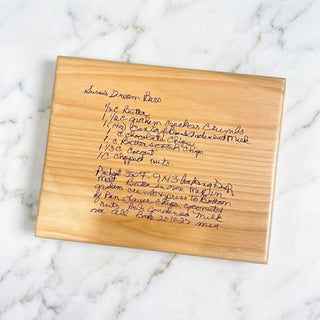 Susan's Dream Bars
1/2 C Butter
1 1/2 C graham crackers Crumbs
1 Can Condensed Milk
1 C chocolate Chips
1 C Butterscotch Chips
1 1/3 C Coconut
1 C chopped nuts
Preheat 350° 9x13 baking Dish
Melt Butter in oven
graham crumbs press to Bottom
of Pan Layer Chips, coconut
nuts Pour Condensed Milk
over all Bake 20 to 25 min